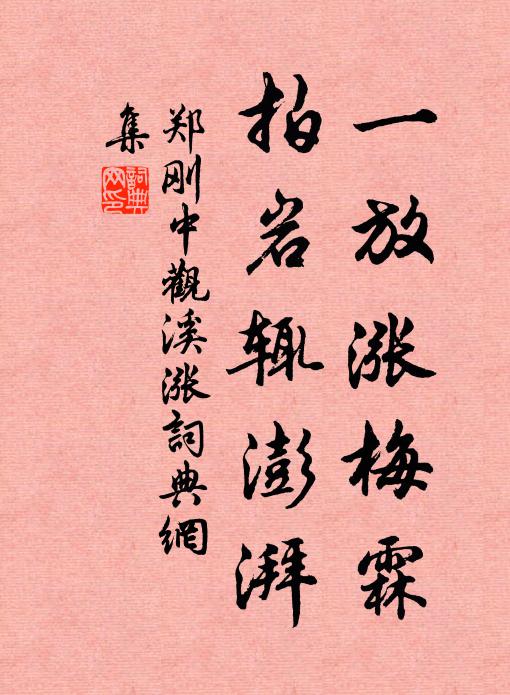 一放漲梅霖
拍岩辄澎湃
郑刚中觀溪漲詞典網
集
詞典网印